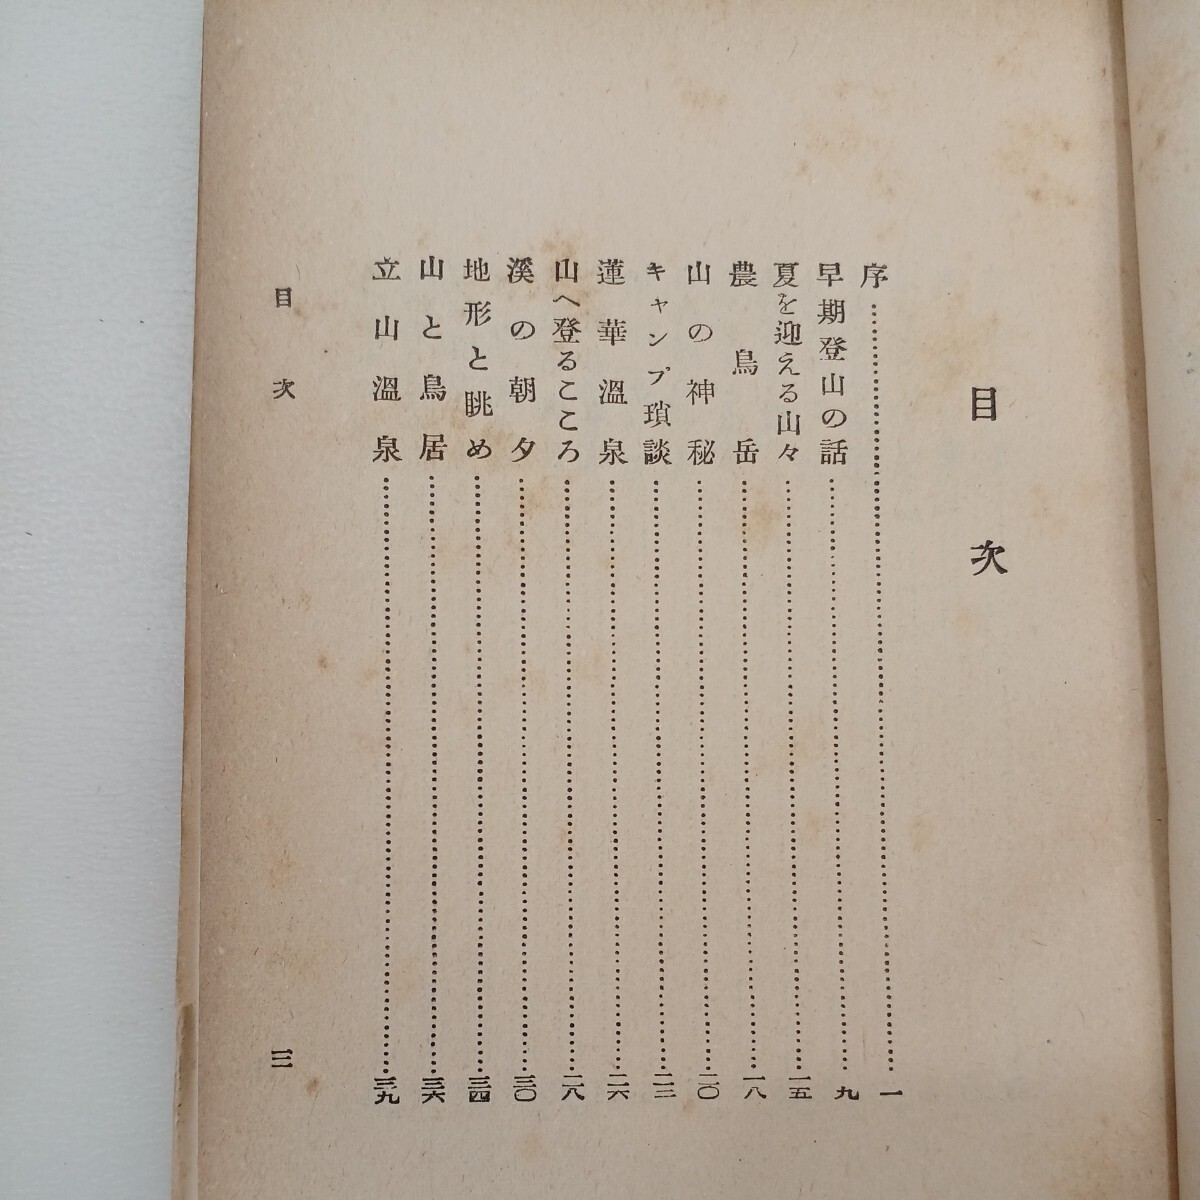 目次
序……一
早期登山の話……九
夏を迎える山々……一五
農鳥岳……一八
山の神秘……二〇
キャンプ瑣談……二三
蓮華溫泉……二六
山へ登るこころ……二八
溪の朝夕……三〇
地形と眺め……三四
山と鳥居……三六
立山溫泉……三九
目次
三